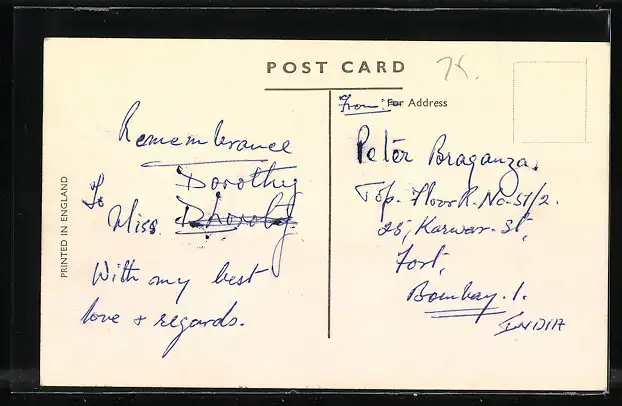 POST CARD
75.
PRINTED IN ENGLAND
Remembrance
Dorothy
To Miss. Dhoroty
With my best
love & regards.
From: For Address
Peter Braganza.
Top. Floor R. No-51/2.
25, Karwar. St,
Fort,
Bombay. 1.
INDIA